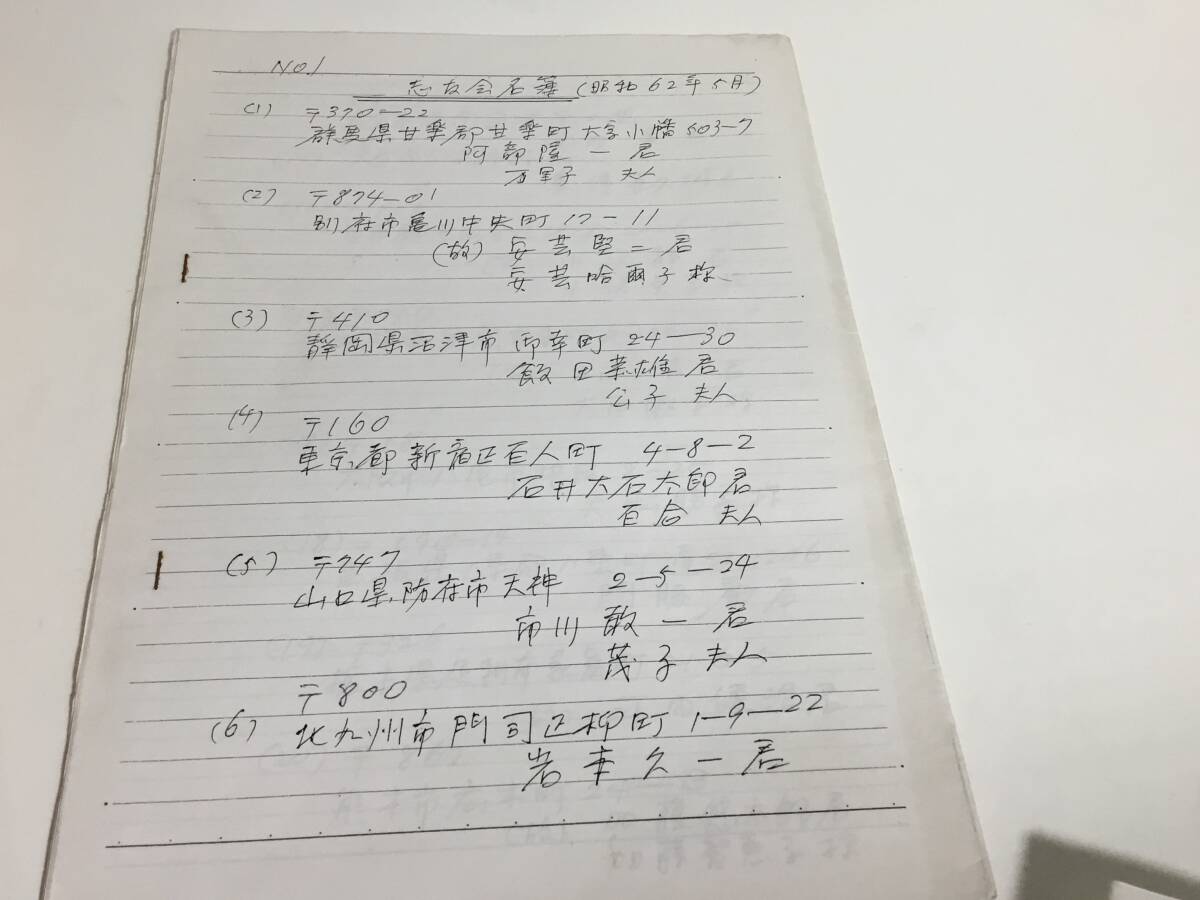 NO.1
志友会名簿 (昭和62年5月)
(1) 〒370-22
群馬県甘楽郡甘楽町大字小幡503-7
阿部隆一君
万里子 夫人
(2) 〒874-01
別府市亀川中央町17-11
(故) 安芸堅二君
安芸哈爾子様
(3) 〒410
静岡県沼津市御幸町 24-30
飯田 雄君
公子 夫人
(4) 〒160
東京都新宿区百人町 4-8-2
石井大石太郎君
百合 夫人
(5) 〒747
山口県防府市天神 2-5-24
市川敢一君
茂子夫人
〒800
(6) 北九州市門司区柳町 1-9-22
岩本久一君